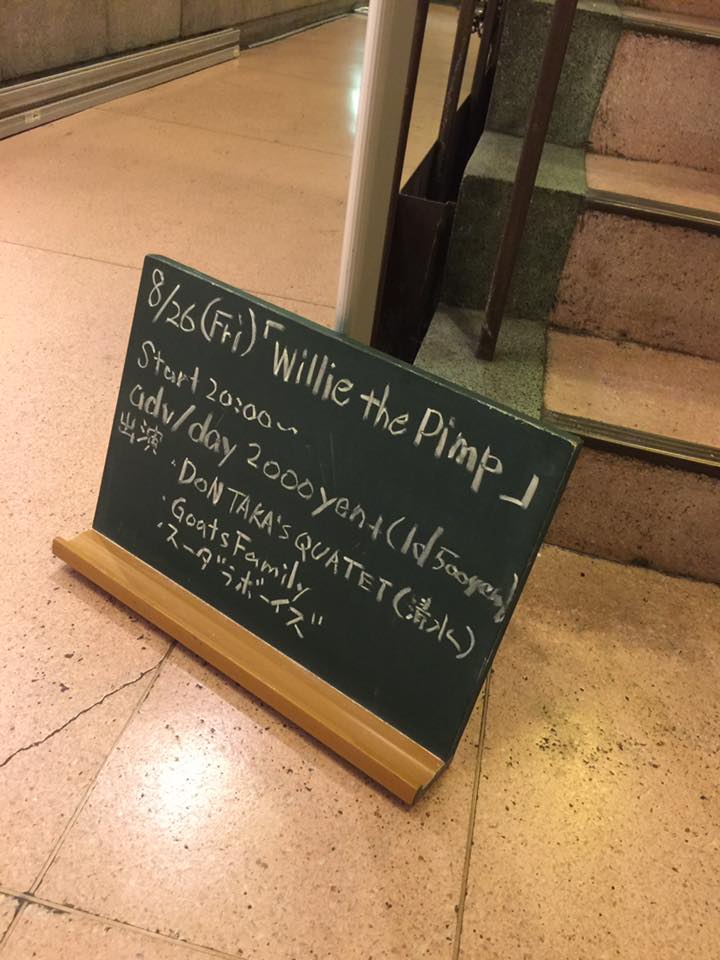 8/26(Fri)「Willie the Pimp」
Start 20:00～
adv/day 2000yen+(1d500yen)
出演
・DON TAKA'S QUATET(清水)
・Goats Family
・スーダラボーイズ